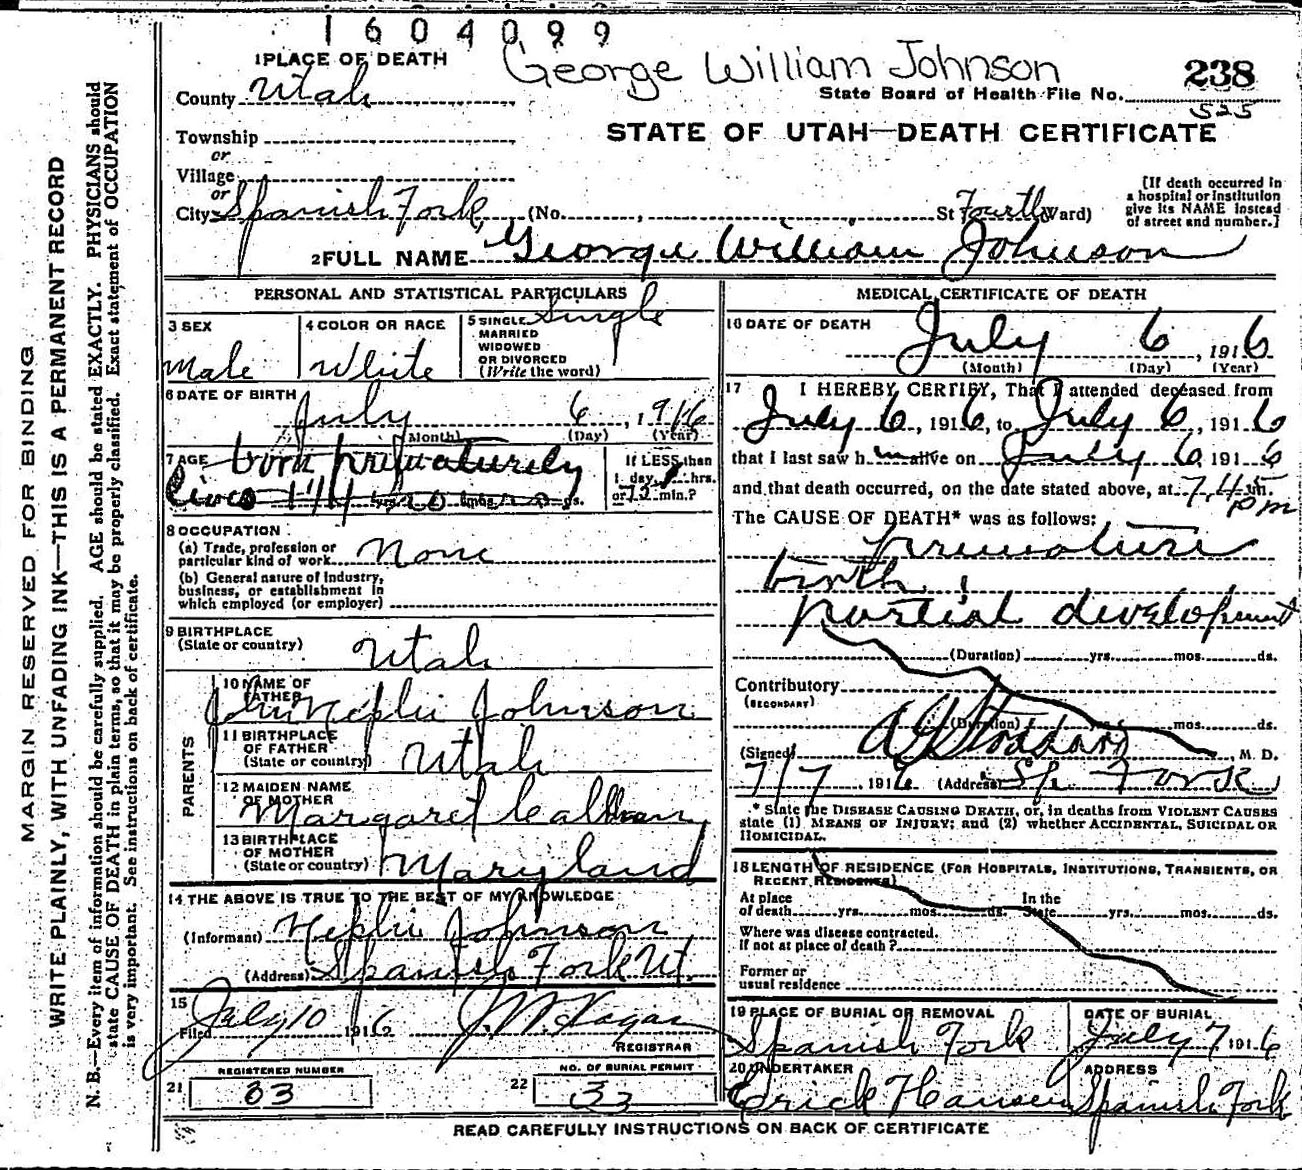 1604099
1 PLACE OF DEATH
George William Johnson
238
County Utah
State Board of Health File No.
525
Township
STATE OF UTAH—DEATH CERTIFICATE
or
Village
or
City Spanish Fork (No. , St Fourth Ward)
[If death occurred in
a hospital or institution
give its NAME instead
of street and number.]
2 FULL NAME George William Johnson
PERSONAL AND STATISTICAL PARTICULARS
3 SEX
Male
4 COLOR OR RACE
White
5 SINGLE
MARRIED
WIDOWED
OR DIVORCED
(Write the word)
Single
6 DATE OF BIRTH
July 6, 1916
(Month) (Day) (Year)
7 AGE born prematurely
lived 1 1/4 hours
yrs. mos. ds.
If LESS than
1 day, 1 hrs.
or 15 min.?
8 OCCUPATION
(a) Trade, profession or
particular kind of work None
(b) General nature of Industry,
business, or establishment in
which employed (or employer)
9 BIRTHPLACE
(State or country) Utah
PARENTS
10 NAME OF
FATHER
John Nephi Johnson
11 BIRTHPLACE
OF FATHER
(State or country) Utah
12 MAIDEN NAME
OF MOTHER
Margaret
13 BIRTHPLACE
OF MOTHER
(State or country) Maryland
14 THE ABOVE IS TRUE TO THE BEST OF MY KNOWLEDGE
(Informant) Nephi Johnson
(Address) Spanish Fork Ut.
15
Filed July 10 1916
REGISTRAR
REGISTERED NUMBER
21 33
NO. OF BURIAL PERMIT
22 33
MEDICAL CERTIFICATE OF DEATH
16 DATE OF DEATH
July 6, 1916
(Month) (Day) (Year)
17 I HEREBY CERTIFY, That I attended deceased from
July 6, 1916, to July 6, 1916
that I last saw him alive on July 6, 1916
and that death occurred, on the date stated above, at 7.45 m.
pm
The CAUSE OF DEATH* was as follows:
premature
birth
partial development
(Duration) yrs. mos. ds.
Contributory
(SECONDARY)
(Duration) yrs. mos. ds.
(Signed) A J Stoddard M. D.
7/7, 1916 (Address) Sp. Fork
* State the DISEASE CAUSING DEATH, or, in deaths from VIOLENT CAUSES
state (1) MEANS OF INJURY; and (2) whether ACCIDENTAL, SUICIDAL OR
HOMICIDAL.
18 LENGTH OF RESIDENCE (FOR HOSPITALS, INSTITUTIONS, TRANSIENTS, OR
RECENT RESIDENTS)
At place
of death yrs. mos. ds.
In the
State yrs. mos. ds.
Where was disease contracted.
if not at place of death?
Former or
usual residence
19 PLACE OF BURIAL OR REMOVAL
Spanish Fork
DATE OF BURIAL
July 7 1916
20 UNDERTAKER
Erick Hansen
ADDRESS
Spanish Fork
READ CAREFULLY INSTRUCTIONS ON BACK OF CERTIFICATE
MARGIN RESERVED FOR BINDING
WRITE PLAINLY, WITH UNFADING INK—THIS IS A PERMANENT RECORD
N. B.—Every item of information should be carefully supplied. AGE should be stated EXACTLY. PHYSICIANS should
state CAUSE OF DEATH in plain terms, so that it may be properly classified. Exact statement of OCCUPATION
is very important. See instructions on back of certificate.